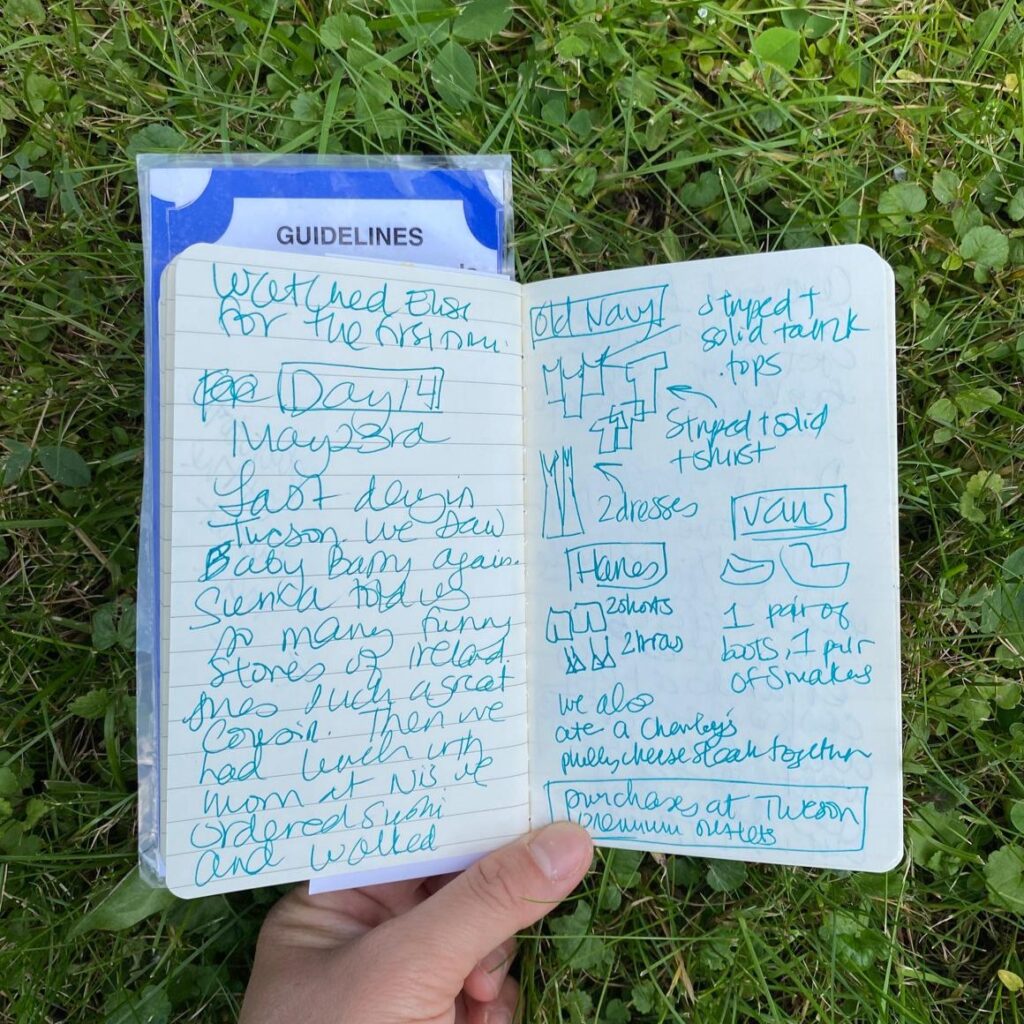 GUIDELINES
Watched Elise
for the first time.
Day 14
May 23rd
Last day in
Tucson. We saw
Baby Barry again.
told us
so many funny
stories of Ireland.
such a great
Then we
had lunch with
mom at we
ordered Sushi
and walked
Old Navy
striped +
solid tank
tops
Striped + solid
tshirst
2 dresses
Vans
Hanes
2 shorts
2 bras
1 pair of
boots, 1 pair
of Sneakers
we also
ate a Charley's
philly cheese steak together
purchases at Tucson
premium outlets